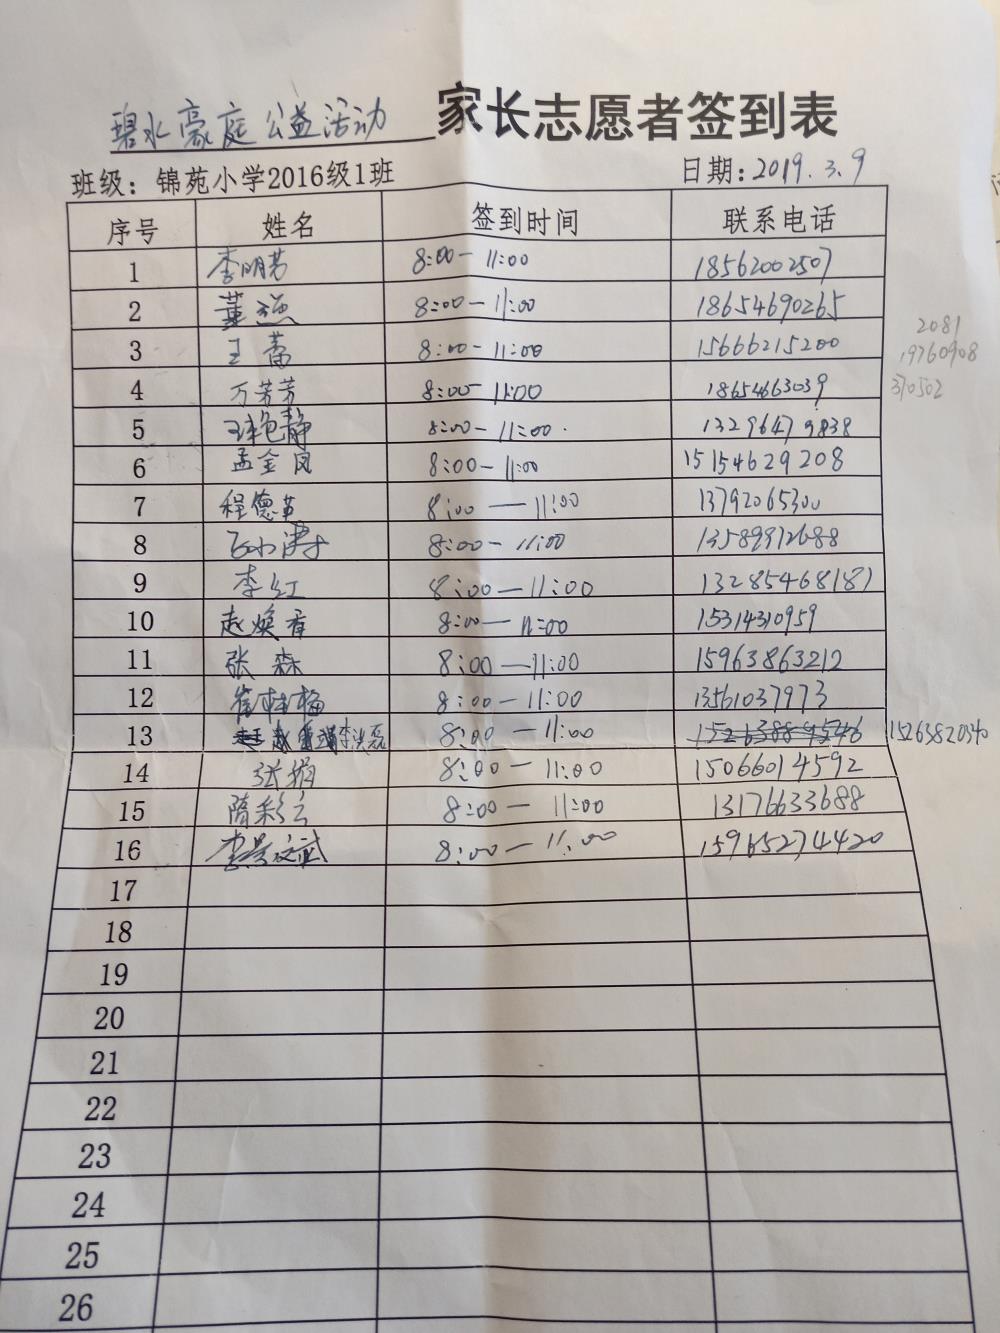 碧水豪庭公益活动 家长志愿者签到表
班级：锦苑小学2016级1班 日期：2019.3.9
序号 姓名 签到时间 联系电话
1 李明芳 8:00-11:00 18562002507
2 董 8:00-11:00 18654690265
3 王蕾 8:00-11:00 15666215200
2081
19760908
370502
4 万芳芳 8:00-11:00 18654663039
5 静 8:00-11:00 13296479838
6 孟金凤 8:00-11:00 15154629208
7 程德英 8:00-11:00 13792065300
8 8:00-11:00 13589912688
9 李红 8:00-11:00 13285468187
10 赵焕香 8:00-11:00 15314310959
11 张森 8:00-11:00 15963863212
12 崔梅 8:00-11:00 13561037973
13 李洪磊 8:00-11:00 15263820340
14 张娟 8:00-11:00 15066014592
15 隋彩云 8:00-11:00 13176633688
16 李景武 8:00-11:00 15965274420
17
18
19
20
21
22
23
24
25
26